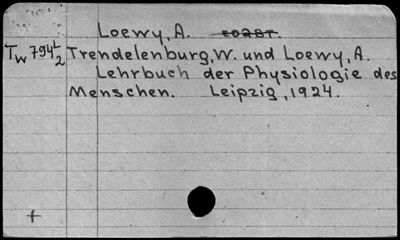 Loewy, A.
Tw 794L2 Trendelenburg, W. und Loewy, A.
Lehrbuch der Physiologie des
Menschen. Leipzig, 1924.
+